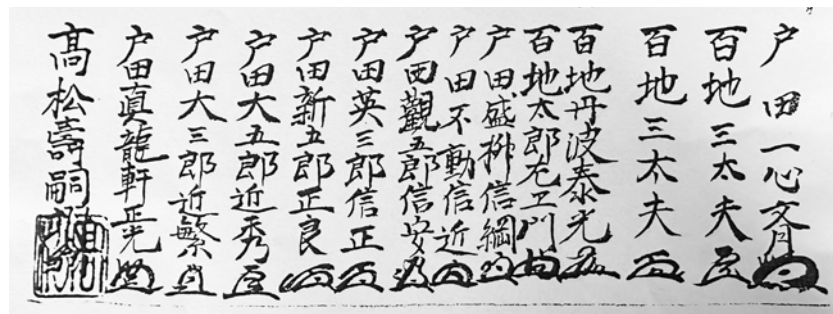 戸田一心斉
百地三太夫
百地三太夫
百地丹波泰光
百地太郎左ヱ門
戸田盛柳信綱
戸田不動信近
戸田觀五郎信安
戸田英三郎信正
戸田新五郎正良
戸田大五郎近秀
戸田大三郎近繁
戸田眞龍軒正光
髙松壽嗣